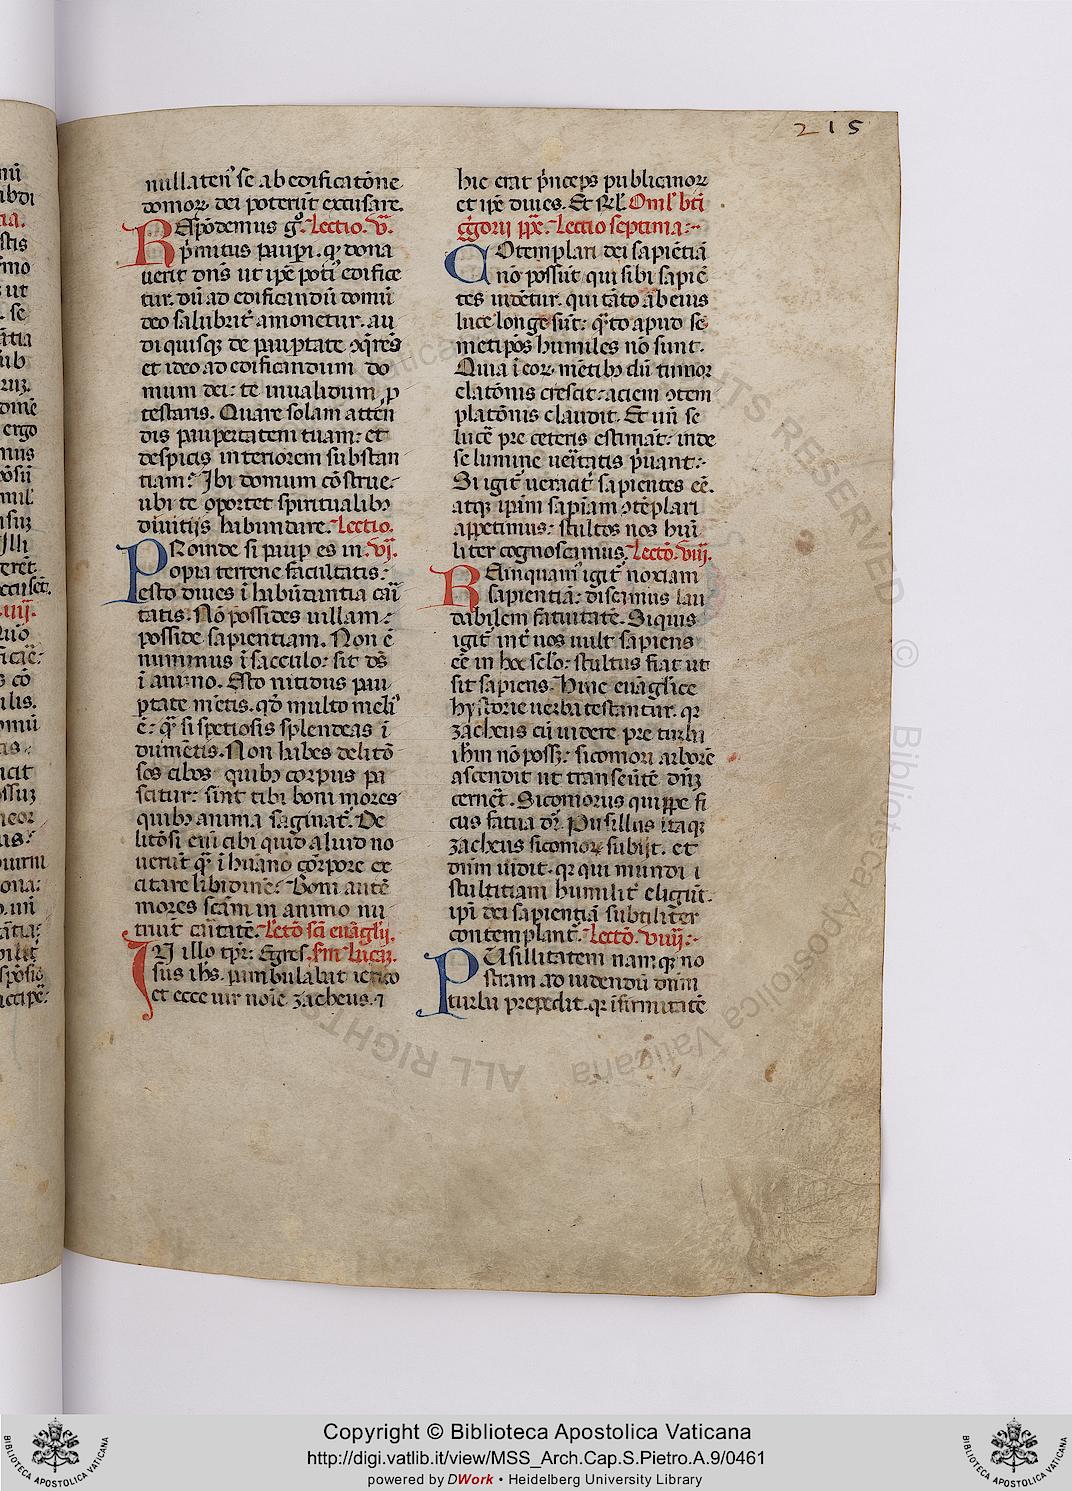 215
nullaten᷒ se ab edificatōne
domoꝝ dei poterūt excusare.
REspōdemus gͦ. Lectio. v̄.
p̄mitus paupi. qͥ dona
uerit dn̄s ut ip̄e pot᷒i edifice
tur. dū ad edificandū domū
deo salubrit᷒ amonetur. au
di quisqꝫ de paup̄tate ꝯq̄reris
et ideo ad edificandum do
mum dei: te inualidum ꝓ
testaris. Quare solam atten̄
dis paupertatem tuam: et
despicis interiorem substan
tiam? Ibi domum cōstrue
ubi te oportet spiritualibꝫ
diuitijs habundare. Lectio.
PRoinde si paup̄ es in vi.
opia terrene facultatis:
esto diues ī habūdantia cari
tatis. Nō possides uillam:
posside sapientiam. Non ē
nummus ī sacculo: sit d̄s
ī animo. Esto nitidus pau
p̄tate mētis. qd̓ multo meli᷒
ē: qͣ si spetiosis splendeas ī
dumētis. Non habes delitō
sos cibos quibꝫ corpus pa
scitur: sint tibi boni mores
quibꝫ anima saginat᷒. De
litōsi eni cibi quid aliud no
uerūt qͣ ī huāno corpore ex
citare libidinē. Boni autē
mores scām in animo nu
triūt caritatē. Lctō scī euāglij.
IN illo tp̄r: Egres sm̄ lucaꝫ.
sus ih̄s. pambulabat iericō
et ecce uir noīe zacheus. ⁊
hic erat p̄nceps publicanoꝝ
et ip̄e diues. Et rl̄. Oml᷒ bti
ḡgorij pp̄e. Lectio septima:
COtemplari dei sapiētiā
nō possūt qui sibi sapiē
tes uidētur. qui tāto ab eius
luce longe sūt: qͣto apud se
metip̄os humiles nō sunt.
Quia ī eoꝝ mētibꝫ dū tumor
elatōnis crescit: aciem ꝯtem
platōnis claudit. Et un̄ se
lucē pre ceteris estimāt: inde
se lumine ueritatis p̄uant:
Si igit᷒ ueracit᷒ sapientes eē.
atqꝫ ip̄am sapiam ꝯtēplari
appetimus: stultos nos hu
liter cognoscimus. Lectō. viii.
RElinquam᷒ igit᷒ noxiam
sapientiā: discamus lau
dabilem fatuitatē. Siquis
igit᷒ int᷒ uos uult sapiens
eē in hoc sclo: stultus fiat ut
sit sapiens. Hinc euāglice
hystorie uerba testantur. qꝛ
zacheus cū uidere pre turba
ih̄m nō possꝫ: sicomori arborē
ascendit ut transeūtē dn̄ꝫ
cernēt. Sicomorus quippe fi
cus fatua dr̄. Pusillus itaqꝫ
zacheus sicomoꝝ subijt. et
dn̄m uidit. qꝛ qui mundi ī
stultitiam humilit᷒ eligūt.
ip̄i dei sapientiā subtiliter
contemplant᷒. Lectō. viiii:
PUsillitatem namqꝫ no
stram ad uidendū dn̄m
turba prepedit. qꝛ īfirmitatē
Copyright © Biblioteca Apostolica Vaticana
http://digi.vatlib.it/view/MSS_Arch.Cap.S.Pietro.A.9/0461
powered by DWork • Heidelberg University Library